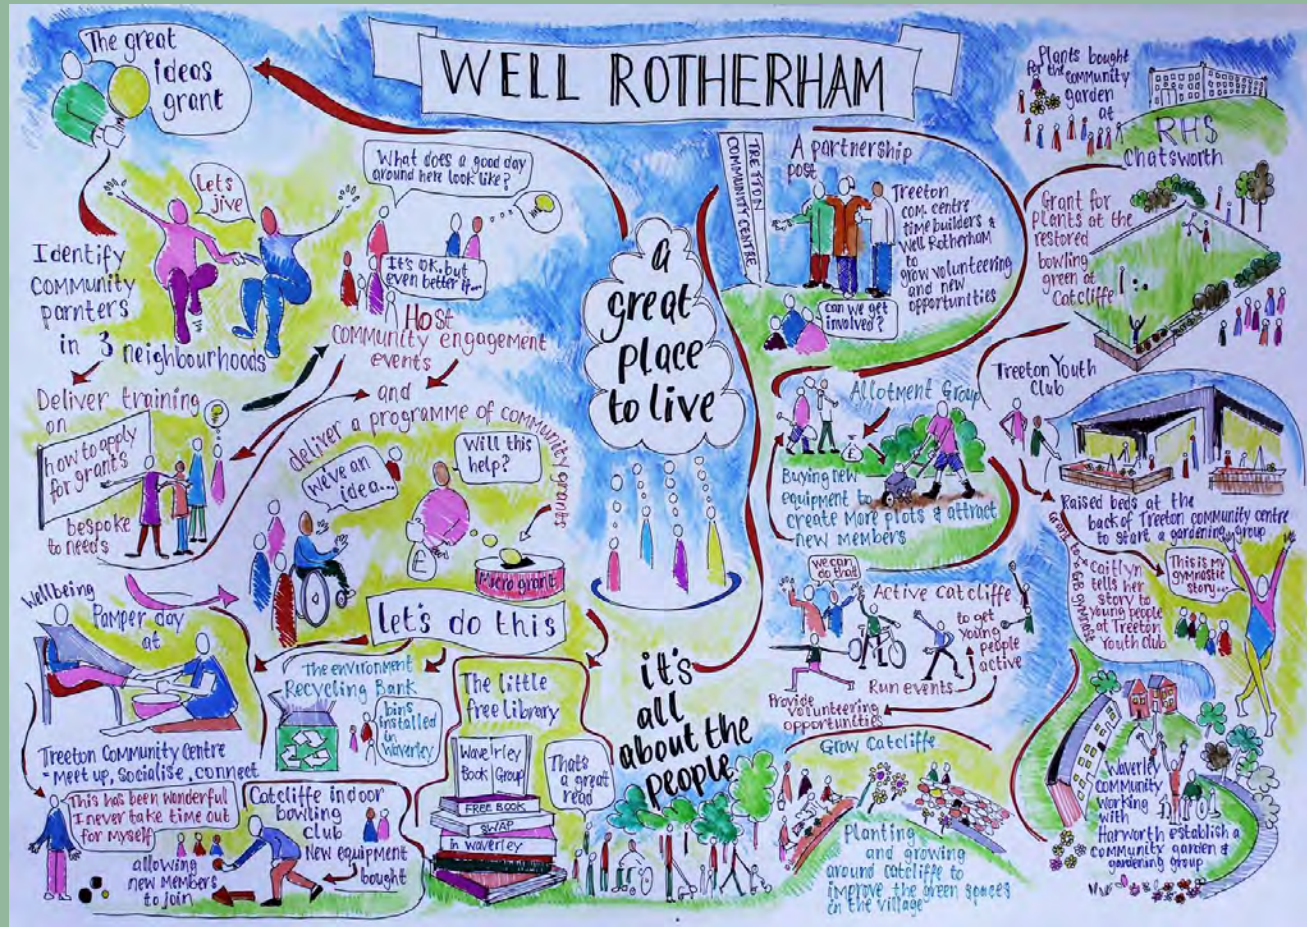 WELL ROTHERHAM
The great
ideas
grant
Identify
community
parnters
in 3 neighbourhoods
Lets
jive
What does a good day
around here look like?
It's OK, but
even better if...
Host
community engagement
events
and
deliver a programme of community grants
Deliver training
on
how to apply
for grants
bespoke
to needs
we've an
idea...
Will this
help?
£
Micro grant
Let's do this
Wellbeing
Pamper day
at
Treeton Community Centre
- Meet up, socialise, connect
This has been wonderful
I never take time out
for myself
The environment
Recycling Bank
bins
installed
in
Waverley
Catcliffe indoor
bowling
club
New equipment
bought
allowing
new members
to join
The little
free library
Wavelrley
Book Group
FREE BOOK
SWAP
in waverley
Thats
a great
read
a
great
place
to live
it's
all
about the
people
TREETON
COMMUNITY CENTRE
A partnership
post
Treeton
com. centre
time builders &
Well Rotherham
to
grow volunteering
and new
opportunities
can we get
involved?
Allotment Group
£
Buying new
equipment to
create more plots & attract
new members
we can
do that
Active catcliffe
to get
young
people
active
Run events
Provide
volunteering
opportunities
Grow Catcliffe
Planting
and growing
around catcliffe to
improve the green spaces
in the village
Plants bought
for the community
garden
at
RHS
Chatsworth
Grant for
plants at the
restored
bowling
green at
Catcliffe
Treeton Youth
Club
Raised beds at the
back of Treeton community centre
to start a gardening group
Grant to GB gymnast
Caitlyn
tells her
story to
young people
at Treeton
Youth club
This is my
gymnastic
story...
Waverley
community
working
with
Harworth establish a
community garden &
gardening group